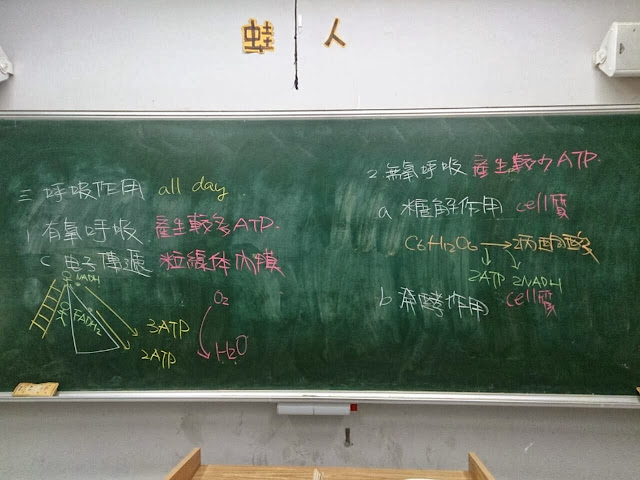 蛙 人
三 呼吸作用 all day
1 有氧呼吸 產生較多ATP.
C 电子傳遞 粒線體內膜
NADH
FADH2
3ATP
2ATP
O2
H2O
2 無氧呼吸 產生較少ATP.
a 糖解作用 cell質
C6H12O6 → 2丙酮酸
2ATP 2NADH
b 發酵作用 cell質